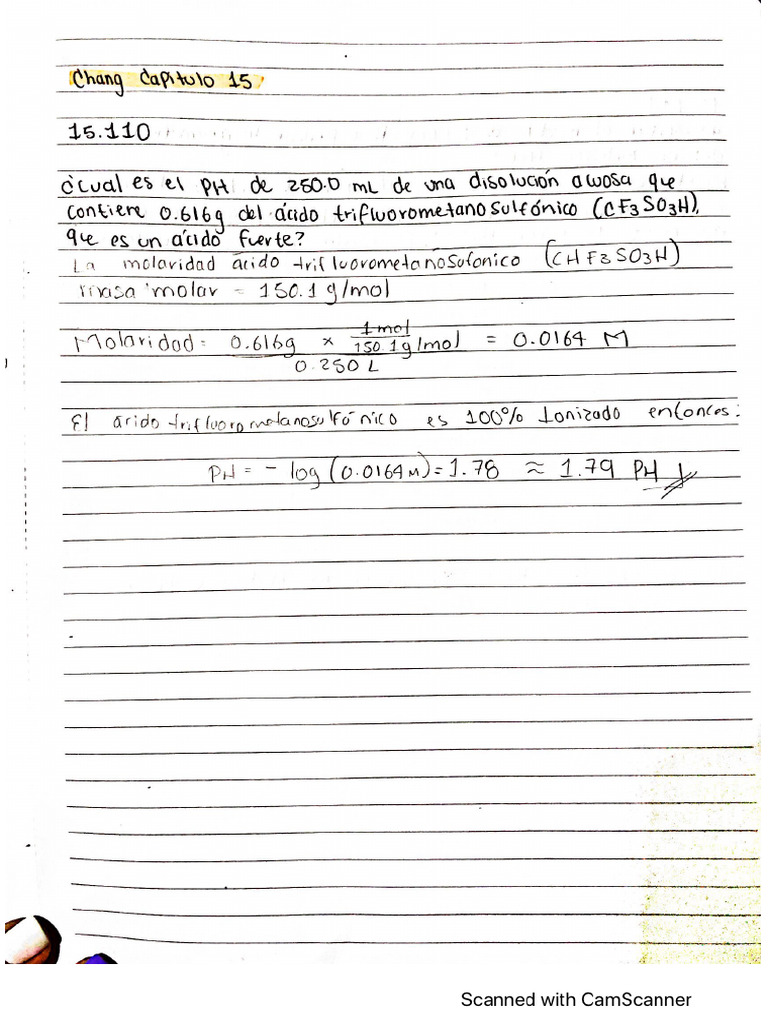 Chang Capitulo 15
15.110
¿cual es el pH de 250.0 mL de una disolución acuosa que
contiene 0.616g del ácido trifluorometano sulfónico (CF3SO3H),
que es un ácido fuerte?
La molaridad ácido trifluorometanosufonico (CHF3SO3H)
masa molar = 150.1 g/mol
Molaridad = 0.616g × 1 mol / 150.1 g/mol = 0.0164 M
0.250 L
El ácido trifluorometanosulfónico es 100% Ionizado entonces:
PH = - log (0.0164 M) = 1.78 ≈ 1.79 PH
Scanned with CamScanner